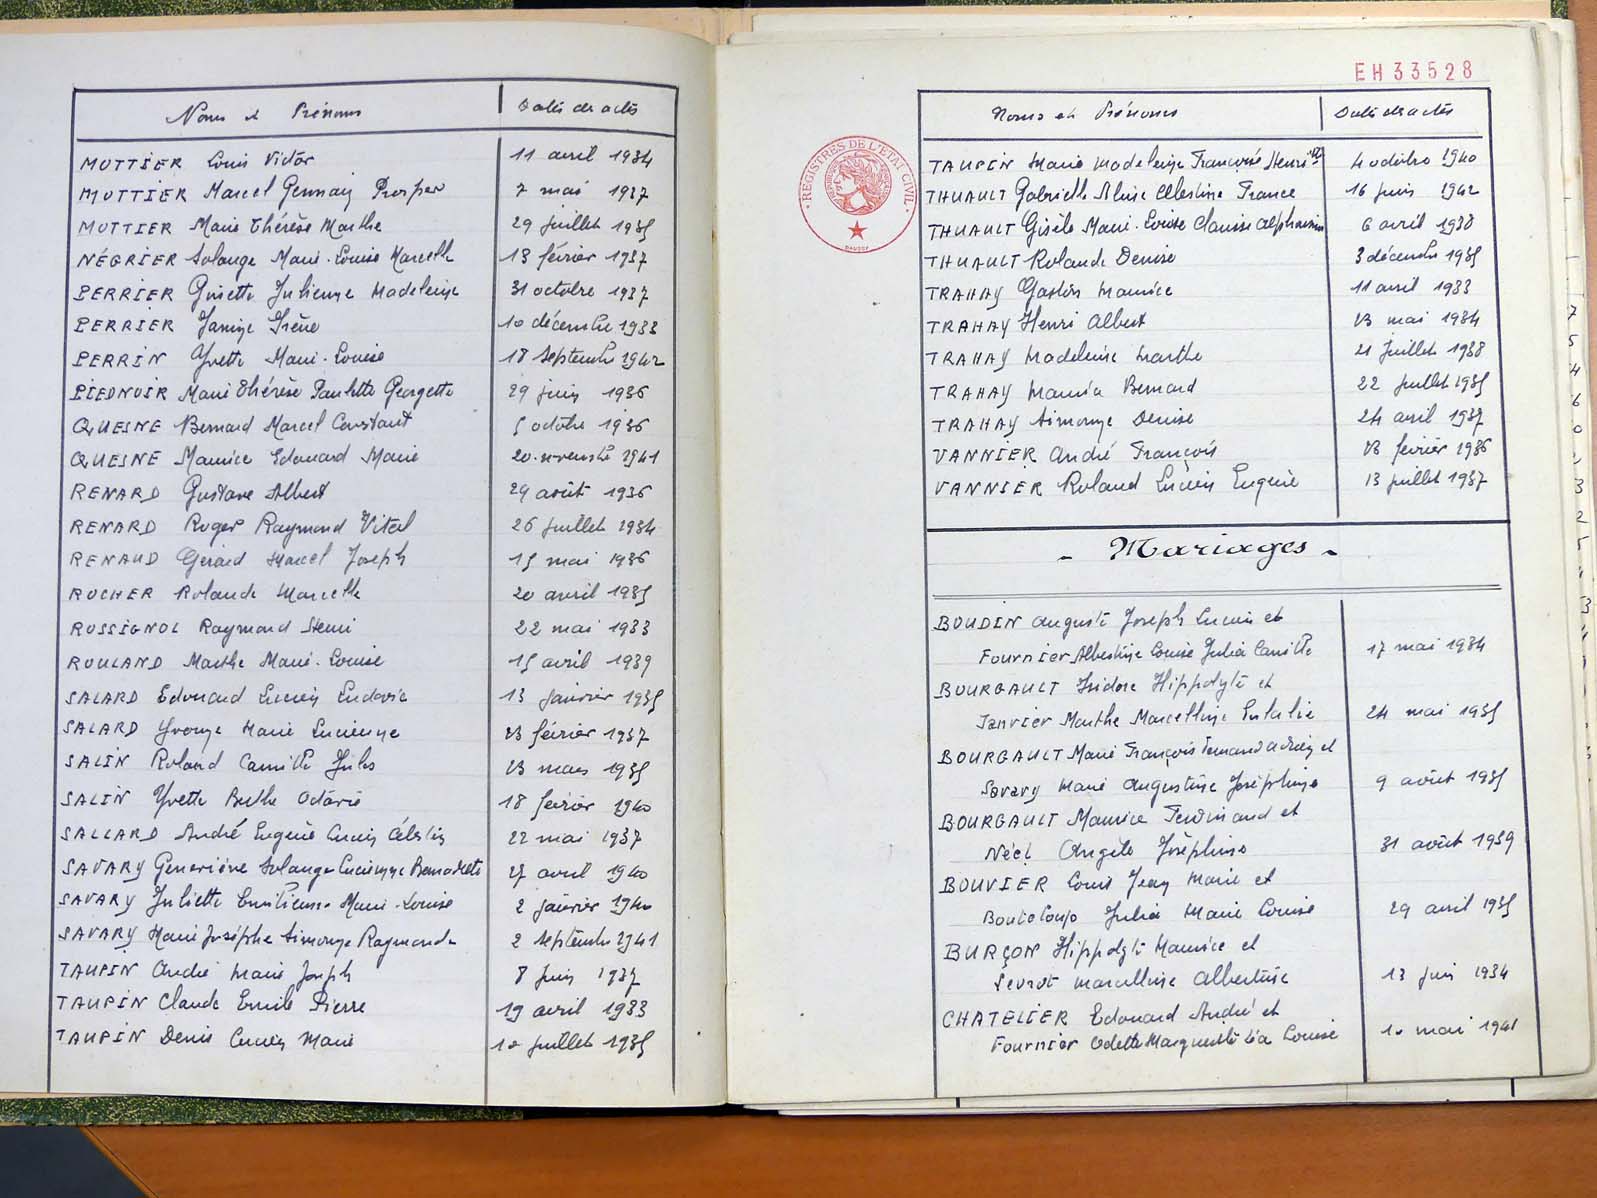 Noms et Prénoms Dates des actes
MOTTIER Louis Victor 11 avril 1934
MOTTIER Marcel Germain Prosper 7 mai 1937
MOTTIER Marie Thérèse Marthe 29 juillet 1935
NÉGRIER Solange Marie-Louise Marcelle 13 février 1937
PERRIER Ginette Julienne Madeleine 31 octobre 1937
PERRIER Janine Irène 10 décembre 1933
PERRIN Yvette Marie-Louise 18 septembre 1942
PIEDNOIR Marie Thérèse Paulette Georgette 29 juin 1936
QUESNE Bernard Marcel Constant 5 octobre 1936
QUESNE Maurice Edouard Marie 20 novembre 1941
RENARD Gustave Albert 29 août 1936
RENARD Roger Raymond Vital 26 juillet 1934
RENAUD Gérard Marcel Joseph 15 mai 1936
ROCHER Rolande Marcelle 20 avril 1935
ROSSIGNOL Raymond Henri 22 mai 1933
ROULAND Marthe Marie-Louise 15 avril 1939
SALARD Edouard Lucien Ludovic 13 janvier 1935
SALARD Yvonne Marie Lucienne 23 février 1937
SALIN Roland Camille Jules 23 mars 1935
SALIN Yvette Berthe Octavie 18 février 1940
SALLARD André Eugène Lucien Célestin 22 mai 1937
SAVARY Geneviève Solange Lucienne Bernadette 27 avril 1940
SAVARY Juliette Emilienne Marie-Louise 2 janvier 1940
SAVARY Marie Josèphe Simonne Raymonde 2 septembre 1941
TAUPIN André Marie Joseph 8 juin 1937
TAUPIN Claude Emile Pierre 19 avril 1933
TAUPIN Denis Lucien Marie 10 juillet 1935
EH33528
REGISTRES DE L'ETAT CIVIL
Noms et Prénoms Dates des actes
TAUPIN Marie Madeleine Françoise Henri<sup>tte</sup> 4 octobre 1940
THUAULT Gabrielle Aline Célestine France 16 juin 1942
THUAULT Gisèle Marie-Louise Clarisse Alphonsine 6 avril 1938
THUAULT Rolande Denise 3 décembre 1935
TRAHAY Gaston Maurice 11 avril 1933
TRAHAY Henri Albert 23 mai 1934
TRAHAY Madeleine Marthe 21 juillet 1938
TRAHAY Maurice Bernard 22 juillet 1935
TRAHAY Simonne Denise 24 avril 1937
VANNIER André François 23 février 1936
VANNIER Roland Lucien Eugène 13 juillet 1937
- Mariages -
BOUDIN Auguste Joseph Lucien et
Fournier Albertine Louise Julia Camille 17 mai 1934
BOURGAULT Isidore Hippolyte et
Janvier Marthe Marcelline Eulalie 24 mai 1935
BOURGAULT Marie François Fernand Adrien et
Savary Marie Augustine Joséphine 9 août 1935
BOURGAULT Maurice Ferdinand et
Néel Angèle Joséphine 31 août 1939
BOUVIER Louis Jean Marie et
Julia Marie Louise 29 avril 1935
BURÇON Hippolyte Maurice et
Marcelline Albertine 13 juin 1934
CHATELIER Edouard André et
Fournier Odette Marguerite Léa Louise 10 mai 1941